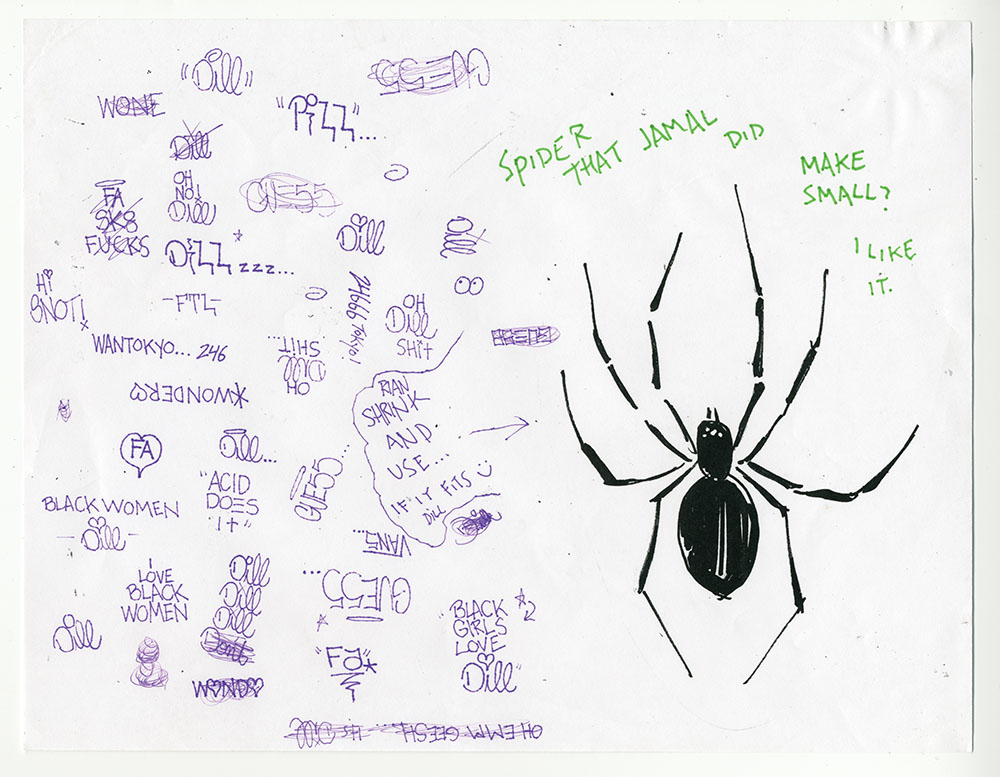 "Dill"
GUESS
WONE
"Pizz"...
Dill
OH
NO!
Dill
GUE55
FA
SK8
FUCKS
Dill
Dill
Dizz zzz...
Hi
SNOT!
-FTL-
24666 TOKYO!
OH
Dill
SHit
WANTOKYO... 246
OH
Dill
SHIT...
*WONDERS
FA
Dill...
"ACID
DOES
it"
GUE55...
BLACK WOMEN
-Dill-
RIAN
SHRINK
AND
USE...
IF IT FITS
DILL
VANS...
GUE55...
I
LOVE
BLACK
WOMEN
Dill
Dill
Dill
Dont
Dill
WONDO
"FA"*
BLACK
GIRLS
LOVE
Dill
OH EMM GEESH... its Dill
SPIDER
THAT JAMAL
DID
MAKE
SMALL?
I LIKE
IT.